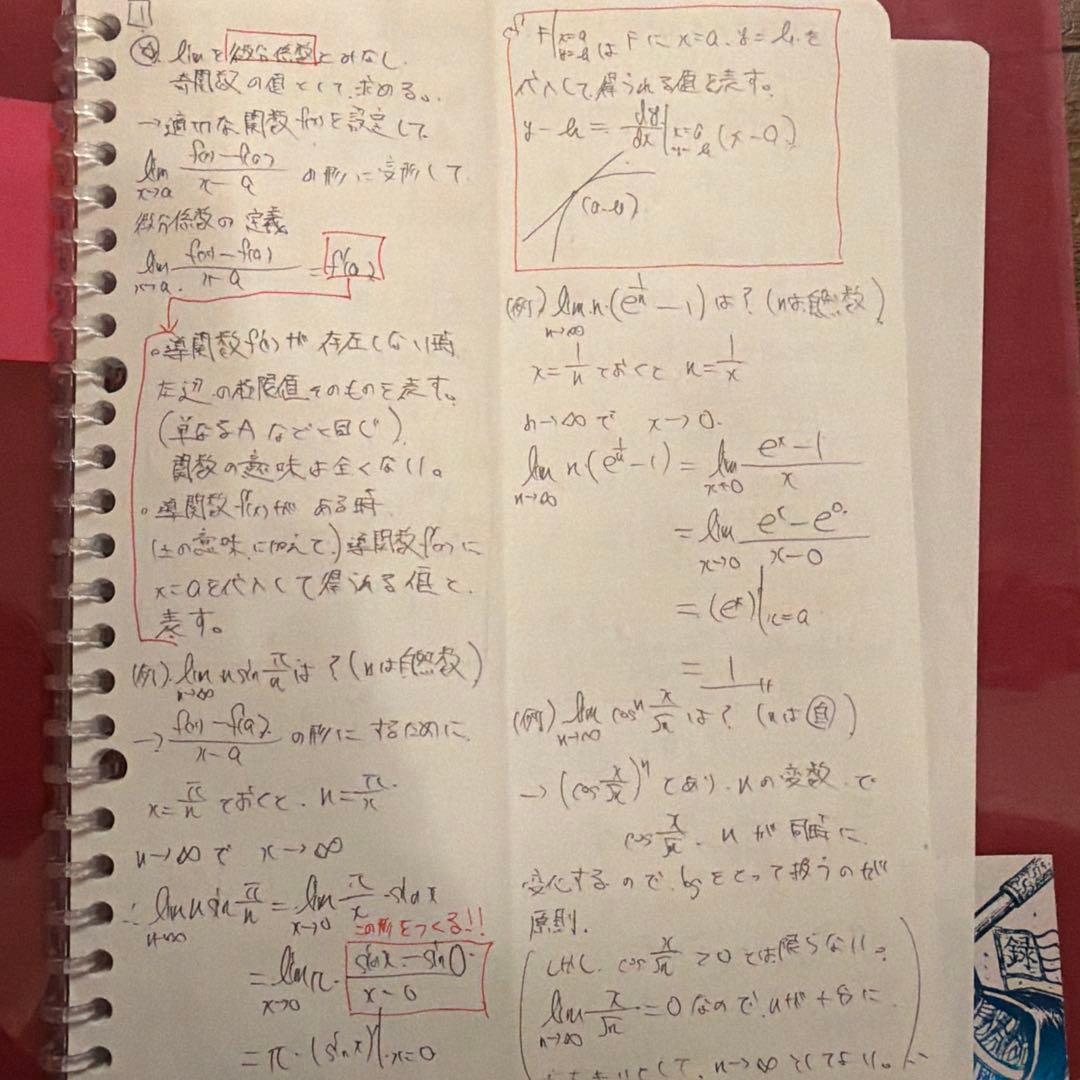 1
☆ limを微分係数とみなし、
導関数の値として求める。
→適切な関数f(x)を設定して
lim x→a (f(x)-f(a))/(x-a) の形に変形して、
微分係数の定義
lim x→a (f(x)-f(a))/(x-a) = f'(a)
。導関数f'(x)が存在しない時
左辺の極限値そのものを表す。
(単なるAなどと同じ)
関数の意味は全くない。
。導関数f'(x)がある時
(上の意味に加えて)導関数f'(x)に
x=aを代入して得られる値を
表す。
(例) lim n→∞ n sin π/n は?(nは自然数)
→ (f(x)-f(a))/(x-a) の形にするために
x=π/n とおくと、n=π/x
n→∞で x→∞
∴ lim n→∞ n sin π/n = lim x→0 π/x・sin x
この形をつくる!!
= lim x→0 π・(sin x - sin 0)/(x-0)
= π・(sin x)'|x=0
F|x=a y=b は Fに x=a、y=b を
代入して得られる値を表す。
y-b = dy/dx|x=a y=b (x-a)
(a,b)
(例) lim n→∞ n・(e^(1/n) -1)は?(nは自然数)
x=1/n とおくと n=1/x
n→∞で x→0.
lim n→∞ n・(e^(1/n) -1) = lim x→0 (e^x -1)/x
= lim x→0 (e^x - e^0)/(x-0)
= (e^x)'|x=a
= 1
(例) lim n→∞ cos^n x/√n は?(nは自)
→ (cos x/√n)^n であり、nの変数で
cos x/√n、nが同時に
変化するので、logをとって扱うのが
原則.
しかし、cos x/√n >0とは限らない。
lim n→∞ x/√n =0なので、nが+∞に
して、n→∞としてよい。
録